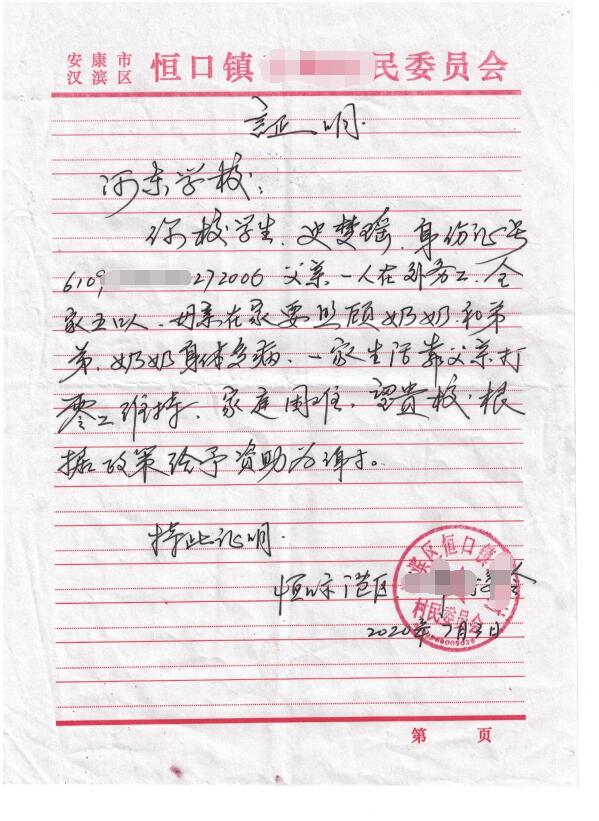 安康市
汉滨区 恒口镇 民委员会
证明
河东学校:
你校学生、史梦瑶、身份证号
6109 272006 父亲一人在外务工、全
家五口人、母亲在家要照顾奶奶和弟
弟、奶奶身体多病、一家生活靠父亲打
零工维持、家庭困难、望贵校、根
据政策给予资助为谢。
特此证明
恒口示范区
滨区恒口镇
村民委员会
2020年7月3日
第 页